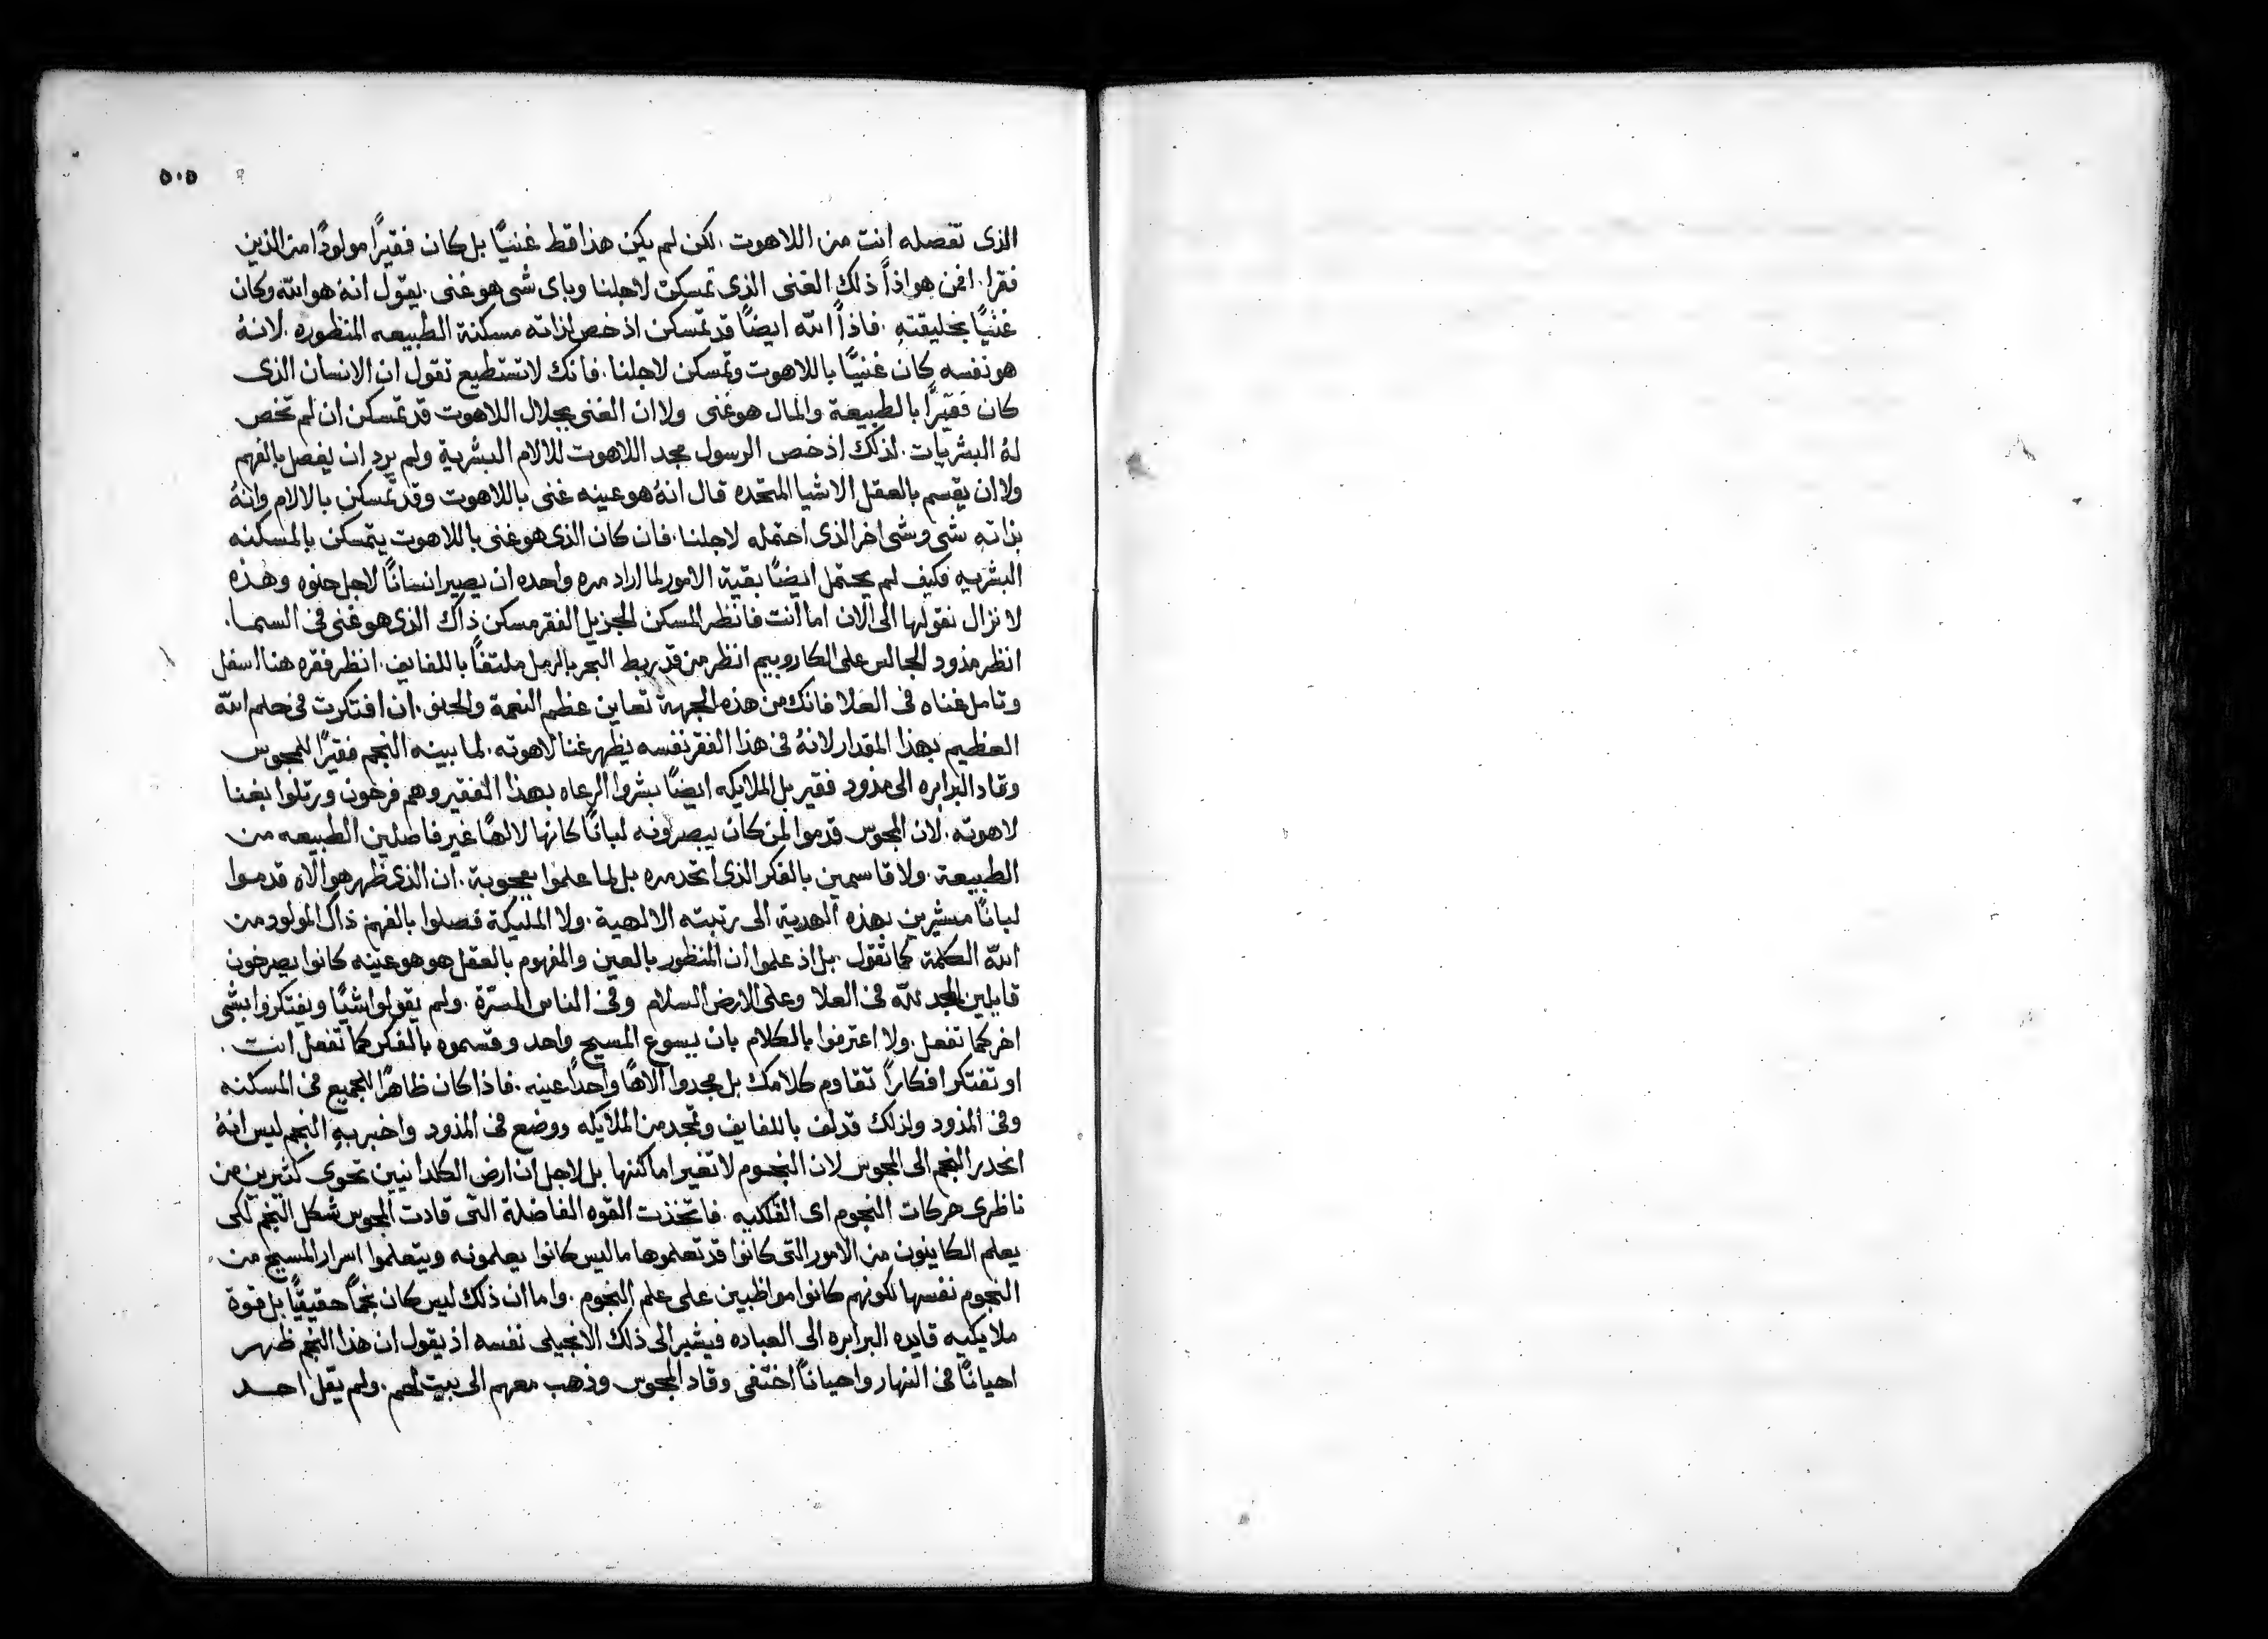 ٥٠٥
الذى تفصله انت من اللاهوت . لكن لم يكن هذا قط غنيًا بل كان فقيرًا مولودًا من الذين
فقرا . افمن هو اذاً ذلك الغنى الذى تمسكن لاجلنا وباى شى هو غنى . يقول انهُ هو الله وكان
غنيًا بخليقتهِ . فاذاً الله ايضًا قد تمسكن اذ خص لذاته مسكنة الطبيعه المنظوره . لانهُ
هو نفسه كان غنيًا باللاهوت وتمسكن لاجلنا . فانك لا تستطيع تقول ان الانسان الذى
كان فقيرًا بالطبيعة والمال هو غنى ولا ان الغنى بجلال اللاهوت قد تمسكن ان لم تخص
لهُ البشريات . لذلك اذ خص الرسول مجد اللاهوت للالام البشرية ولم يرد ان يفصل بالفهم
ولا ان يقسم بالعقل الاشيا المتحده قال انهُ هو عينه غنى باللاهوت وقد تمسكن بالالام وانهُ
بذاتهِ شى وشى اخر الذى احتمله لاجلنا . فان كان الذى هو غنى باللاهوت يتمسكن بالمسكنه
البشريه فكيف لم يحتمل ايضًا بقية الامور لما اراد مره واحده ان يصير انسانًا لاجل حنوه وهذه
لا نزال نقولها الى الان اما انت فانظر المسكن الجزيل الفقر مسكن ذاك الذى هو غنى فى السما .
انظر مذود الجالس على الكاروبيم انظر من قد ربط البحر بالرمل ملتفًا باللفايف . انظر فقره هنا اسفل
وتامل غناه فى العلا فانك من هذه الجهة تعاين عظم النعمة والحنو . ان افتكرت فى حلم الله
العظيم بهذا المقدار لانهُ فى هذا الفقر نفسه يظهر غنا لاهوته . لما بينه النجم فقيرًا للمجوس
وقاد البرابره الى مذود فقير بل الملايكه ايضًا بشروا الرعاه بهذا الفقير وهم فرحون ورتلوا بغنا
لاهوته . لان المجوس قدموا لمن كان يبصرونه لبانًا كانها لالهًا غير فاصلين الطبيعه من
الطبيعة . ولا قاسمين بالفكر الذى اتحد مره بل لما علموا بعجوبة . ان الذى ظهر هو الاه قدموا
لبانًا مشيرين بهذه الهدية الى رتبته الالهية . ولا المليكة فصلوا بالفهم ذاك المولود من
الله الكلمة كما تقول . بل اذ علموا ان المنظور بالعين والمفهوم بالعقل هو هو عينه كانوا يصرخون
قايلين المجد لله فى العلا وعلى الارض السلام وفى الناس المسرّة . ولم يقولوا شيًا ويفتكروا بشى
اخر كما تفعل . ولا اعترفوا بالكلام بان يسوع المسيح واحد وقسموه بالفكر كما تفعل انت .
او تفتكر افكاراً تقاوم كلامك بل مجدوا الاهًا واحداً عينه . فاذا كان ظاهرًا للجميع فى المسكنه
وفى المذود ولذلك قد لف باللفايف وتمجد من الملايكه ووضع فى المذود واخبر بهِ النجم ليس انهُ
انحدر النجم الى المجوس لان النجوم لا تغير اماكنها بل لاجل ان ارض الكلدانيين تحوى كثيرين من
ناظرى حركات النجوم اى الفلكيه . فاتخذت القوه الفاضلة التى قادت المجوس شكل النجم لكى
يعلم الكاينون من الامور التى كانوا قد تعلموها ما ليس كانوا يعلمونه ويتعلموا اسرار المسيح من
النجوم نفسها لكونهم كانوا مواظبين على علم النجوم . واما ان ذلك ليس كان نجمًا حقيقيًا بل قوة
ملايكيه قايده البرابره الى العباده فيشير الى ذلك الانجيلى نفسه اذ يقول ان هذا النجم ظهر
احيانًا فى النهار واحيانًا اختفى وقاد المجوس وذهب معهم الى بيت لحم . ولم يقل احد